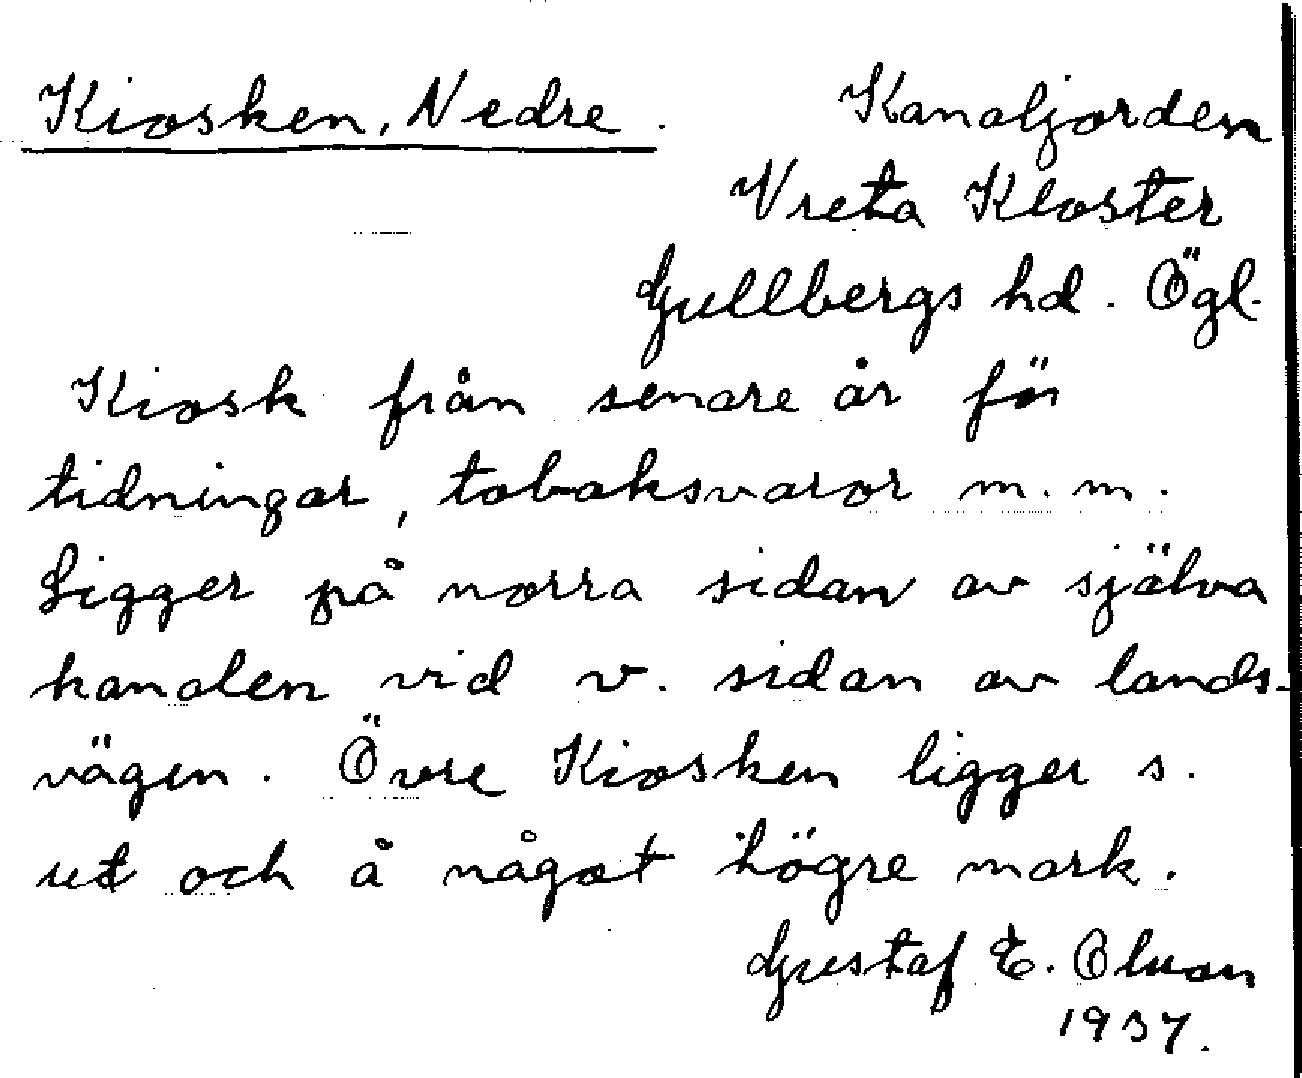 Kiosken, Nedre. Kanaljorden
Vreta Kloster
Gullbergs hd. Ögl.
Kiosk från senare år för
tidningar, tobaksvaror m.m.
Ligger på norra sidan av själva
kanalen vid v. sidan av lands-
vägen. Övre Kiosken ligger s.
ut och å något högre mark.
Gustaf E. Olsson
1937.